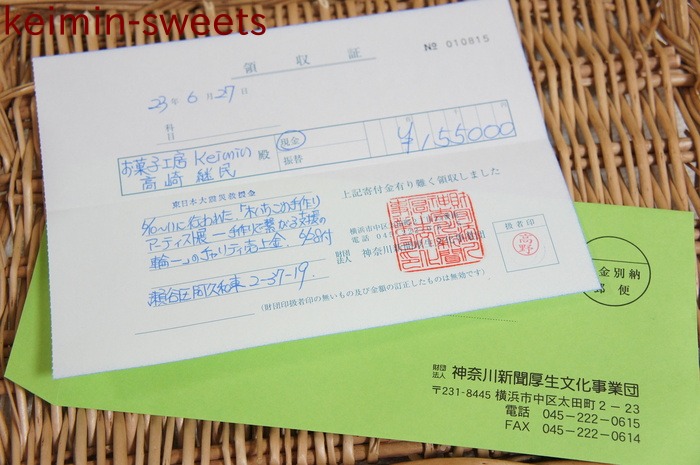 keimin-sweets
領収証
№ 010815
23年 6月 27日
科目
お菓子工房 keimin 殿
高崎 継民
現金
振替
¥155000
東日本大震災救援金
上記寄付金有り難く領収しました
アーティスト展 ー手作りで繋がる支援の
輪ー」のチャリティ売上金
瀬谷区阿久和東 2-37-19
横浜市中区
電話 045
財団法人 神奈川新聞厚生文化事業団
扱者印
高野
(財団印扱者印の無いもの及び金額の訂正したものは無効です)
料金別納
郵便
財団法人 神奈川新聞厚生文化事業団
〒231-8445 横浜市中区太田町2-23
電話 045-222-0615
FAX 045-222-0614